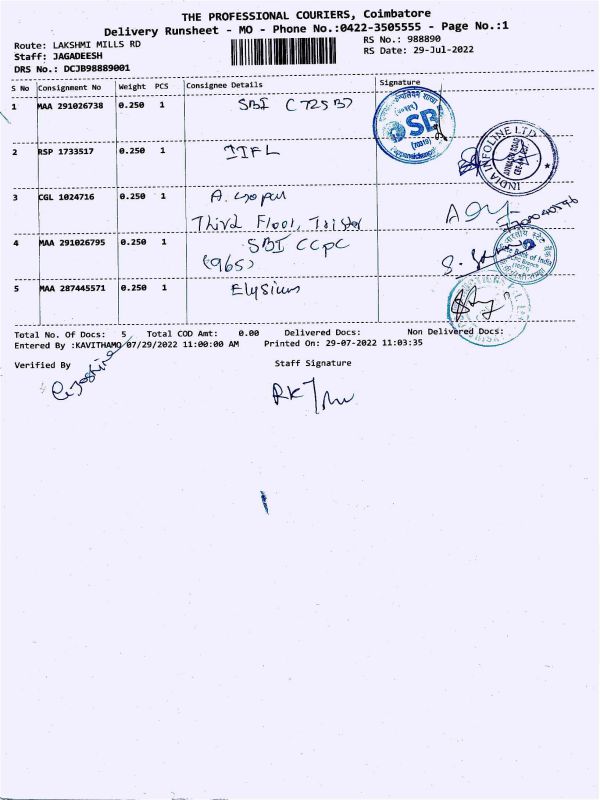 THE PROFESSIONAL COURIERS, Coimbatore
Delivery Runsheet - MO - Phone No.:0422-3505555 - Page No.:1
Route: LAKSHMI MILLS RD
RS No.: 988890
Staff: JAGADEESH
RS Date: 29-Jul-2022
DRS No.: DCJB98889001
S No Consignment No Weight PCS Consignee Details Signature
1 MAA 291026738 0.250 1 SBI (725B)
SB
2 RSP 1733517 0.250 1 IIFL
INDIA INFOLINE LTD
3 CGL 1024716 0.250 1 A. Gopal
Third Floor, Tristar
4 MAA 291026795 0.250 1 SBI CCPC
(965)
5 MAA 287445571 0.250 1 Elysium
Total No. Of Docs: 5 Total COD Amt: 0.00 Delivered Docs: Non Delivered Docs:
Entered By :KAVITHAMO 07/29/2022 11:00:00 AM Printed On: 29-07-2022 11:03:35
Verified By Staff Signature